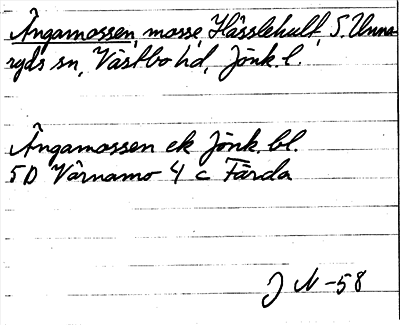 Ängamossen, mosse, Hässlehult, S. Unna-
ryds sn, Västbo hd, Jönk. l.
Ängamossen ek Jönk. bl.
5D Värnamo 4 c Färda
J N -58